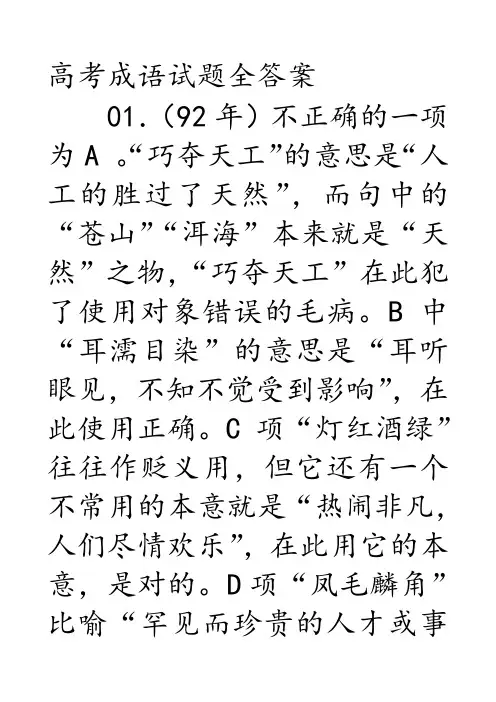 高考成语试题全答案
01.（92年）不正确的一项
为A 。“巧夺天工”的意思是“人
工的胜过了天然”，而句中的
“苍山”“洱海”本来就是“天
然”之物，“巧夺天工”在此犯
了使用对象错误的毛病。B 中
“耳濡目染”的意思是“耳听
眼见，不知不觉受到影响”，在
此使用正确。C 项“灯红酒绿”
往往作贬义用，但它还有一个
不常用的本意就是“热闹非凡，
人们尽情欢乐”，在此用它的本
意，是对的。D项“凤毛麟角”
比喻“罕见而珍贵的人才或事